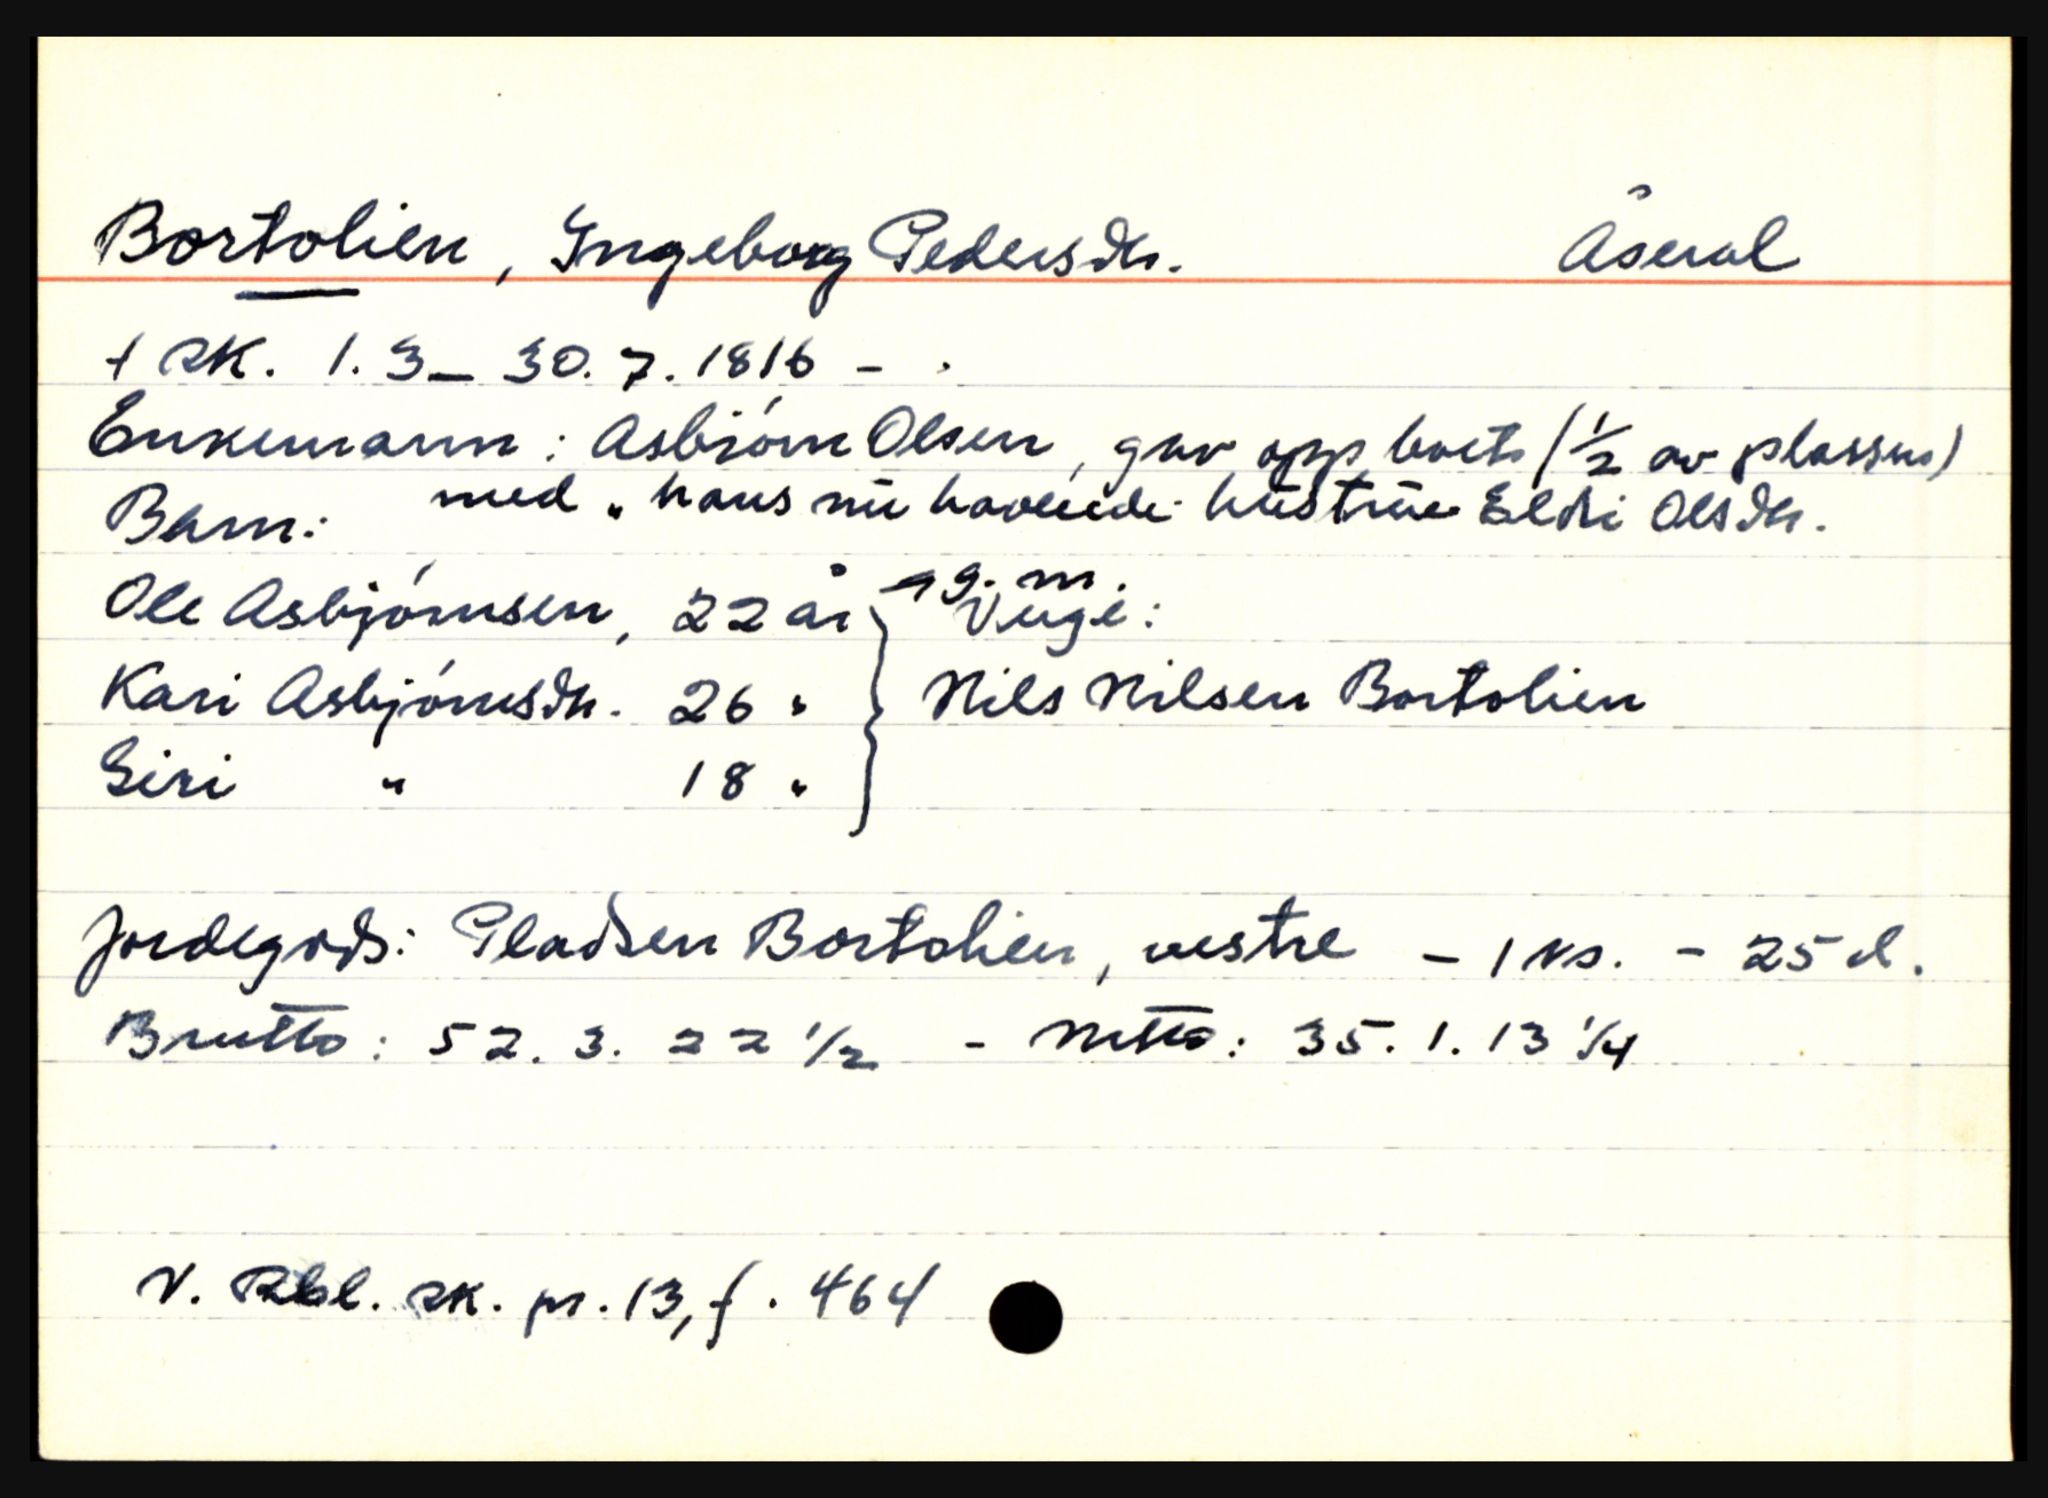 Bortolien, Ingeborg Pedersdtr. Åseral
† sk. 1.3 – 30.7.1816 –
Enkemann: Asbiörn Olsen, gav opp boets (1/2 av plassen)
med "hans nú havende hústrúe Eldri Olsdtr.
Barn:
Ole Asbjörnsen, 22 år g.m.
Verge:
Kari Asbjörnsdtr. 26 " Nils Nilsen Bortolien
Siri " 18 "
Jordegods: Pladsen Bortolien, vestre – 1 ks. – 25 d.
Brutto: 52. 3. 22 1/2 – Netto: 35. 1. 13 1/4
V. Rbl. sk. pr. 13, f. 464